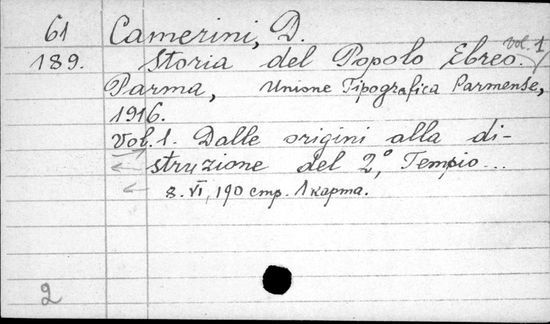 61 Camerini, D.
189. Storia del Popolo Ebreo. Vol. 1
Parma, Unione Tipografica Parmense,
1916.
Vol. 1. Dalle origini alla di-
struzione del 2°, Tempio...
8. VI, 190 стр. 1 карта.
2